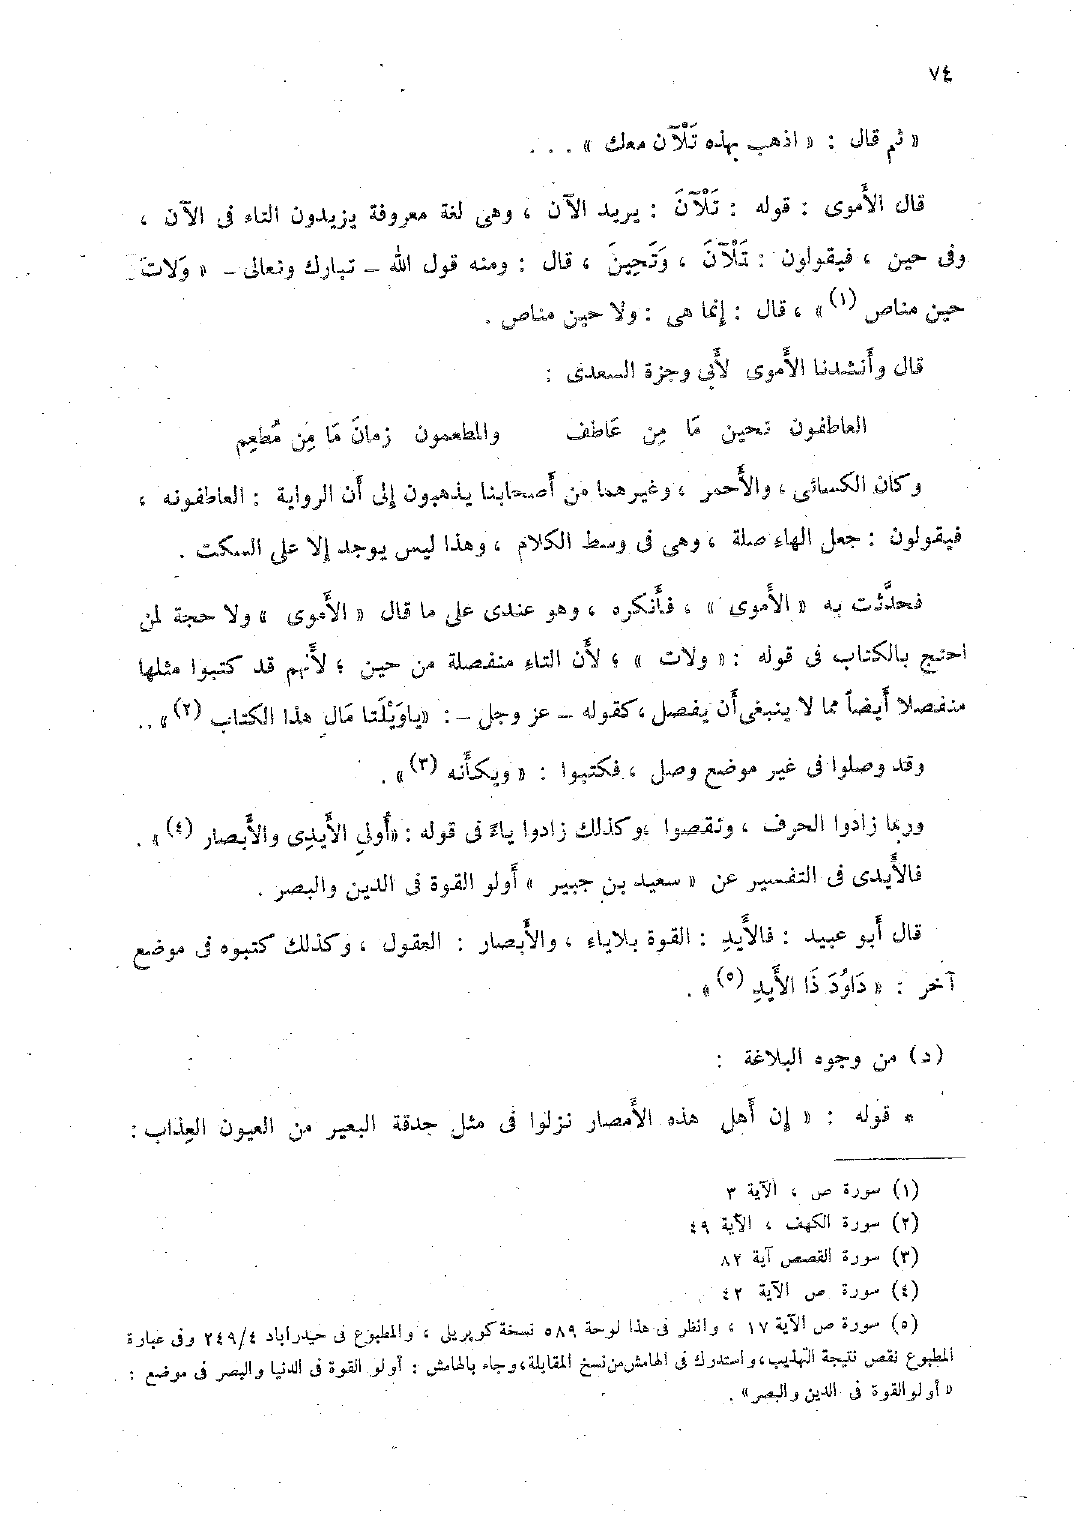 ٧٤
« ثم قال : « اذهب بهذه تَلْآن معك » . . .
قال الأَموى : قوله : تَلْآنَ : يريد الآن ، وهى لغة معروفة يزيدون التاء فى الآن ،
وفى حين ، فيقولون : تَلْآنَ ، وَتَحِينَ ، قال : ومنه قول الله – تبارك وتعالى – « وَلاتَ
حين مناص (١) » ، قال : إنما هى : ولا حين مناص .
قال وأَنشدنا الأَموى لأَبى وجزة السعدى :
العاطفون تحين مَا مِن عَاطف والمطعمون زمانَ مَا مِن مُطعِم
وكان الكسائى ، والأَحمر ، وغيرهما من أَصحابنا يذهبون إلى أَن الرواية : العاطفونه ،
فيقولون : جعل الهاء صلة ، وهى فى وسط الكلام ، وهذا ليس يوجد إلا على السكت .
فحدَّثت به « الأَموى » ، فأَنكره ، وهو عندى على ما قال « الأَموى » ولا حجة لمن
احتج بالكتاب فى قوله : « ولات » ؛ لأَن التاء منفصلة من حين ؛ لأَنهم قد كتبوا مثلها
منفصلا أَيضاً مما لا ينبغى أَن يفصل ، كقوله – عز وجل – : «ياوَيْلَتنا مَال هذا الكتاب (٢) » ..
وقد وصلوا فى غير موضع وصل ، فكتبوا : « ويكأَنه (٣) » .
وربما زادوا الحرف ، ونقصوا ، وكذلك زادوا ياءً فى قوله : «أُولى الأَيدِى والأَبصار (٤) » .
فالأَيدى فى التفسير عن « سعيد بن جبير » أَولو القوة فى الدين والبصر .
قال أَبو عبيد : فالأَيدِ : القوة بلاياء ، والأَبصار : العقول ، وكذلك كتبوه فى موضع
آخر : « دَاوُدَ ذَا الأَيدِ (٥) » .
(د) من وجوه البلاغة :
* قوله : « إن أَهل هذه الأَمصار نزلوا فى مثل حدقة البعير من العيون العِذاب :
(١) سورة ص ، الآية ٣
(٢) سورة الكهف ، الآية ٤٩
(٣) سورة القصص آية ٨٢
(٤) سورة ص الآية ٤٢
(٥) سورة ص الآية ١٧ ، وانظر فى هذا لوحة ٥٨٩ نسخة كوبريلى ، والمطبوع فى حيدراباد ٢٤٩/٤ وفى عبارة
المطبوع نقص نتيجة التهذيب، واستدرك فى الهامش من نسخ المقابلة، وجاء بالهامش : أولو القوة فى الدنيا والبصر فى موضع :
« أولو القوة فى الدين والبصر» .